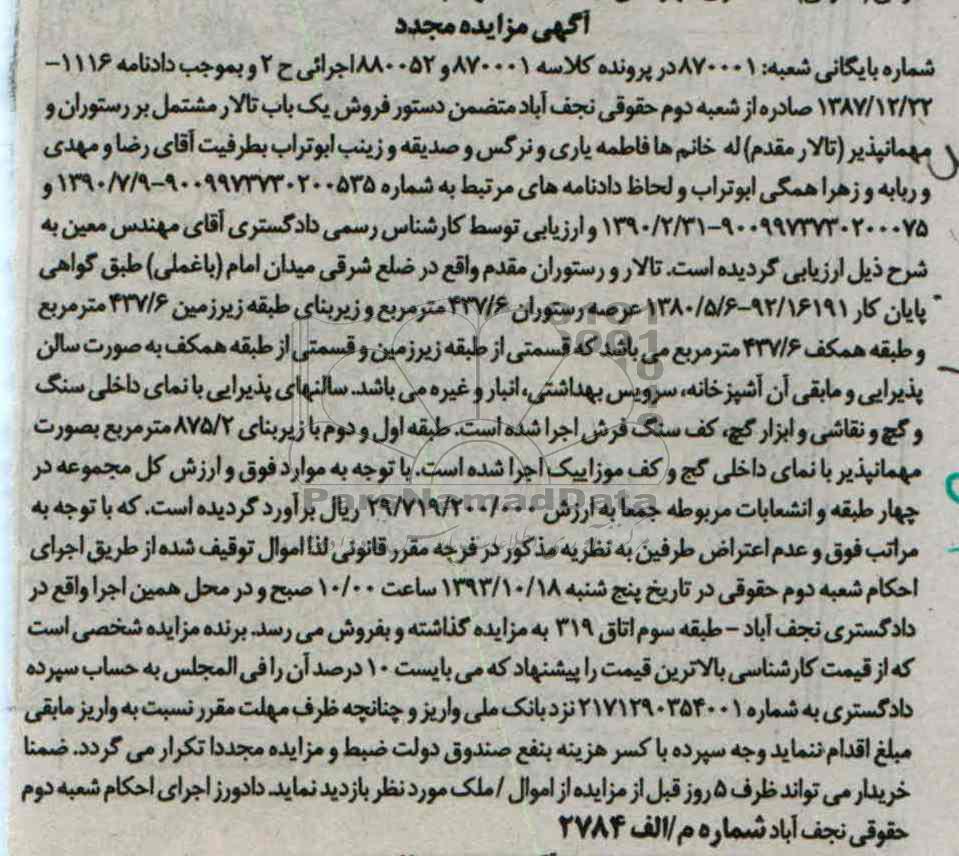 آگهی مزایده مجدد
شماره بایگانی شعبه: ۸۷۰۰۰۱ در پرونده کلاسه ۸۷۰۰۰۱ و ۸۸۰۰۵۲ اجرائی ح ۲ و بموجب دادنامه ۱۱۱۶-
۱۳۸۷/۱۲/۲۲ صادره از شعبه دوم حقوقی نجف آباد متضمن دستور فروش یک باب تالار مشتمل بر رستوران و
مهمانپذیر (تالار مقدم) له خانم ها فاطمه یاری و نرگس و صدیقه و زینب ابوتراب بطرفیت آقای رضا و مهدی
و ربابه و زهرا همگی ابوتراب و لحاظ دادنامه های مرتبط به شماره ۹۰۰۹۹۷۳۷۳۰۲۰۰۵۳۵-۱۳۹۰/۷/۹ و
۹۰۰۹۹۷۳۷۳۰۲۰۰۰۷۵-۱۳۹۰/۲/۳۱ و ارزیابی توسط کارشناس رسمی دادگستری آقای مهندس معین به
شرح ذیل ارزیابی گردیده است. تالار و رستوران مقدم واقع در ضلع شرقی میدان امام (باغملی) طبق گواهی
پایان کار ۹۲/۱۶۱۹۱-۱۳۸۰/۵/۶ عرصه رستوران ۴۳۷/۶ مترمربع و زیربنای طبقه زیرزمین ۴۳۷/۶ مترمربع
و طبقه همکف ۴۳۷/۶ مترمربع می باشد که قسمتی از طبقه زیرزمین و قسمتی از طبقه همکف به صورت سالن
پذیرایی و مابقی آن آشپزخانه، سرویس بهداشتی، انبار و غیره می باشد. سالنهای پذیرایی با نمای داخلی سنگ
و گچ و نقاشی و ابزار گچ، کف سنگ فرش اجرا شده است. طبقه اول و دوم با زیربنای ۸۷۵/۲ مترمربع بصورت
مهمانپذیر با نمای داخلی گچ و کف موزاییک اجرا شده است. با توجه به موارد فوق و ارزش کل مجموعه در
چهار طبقه و انشعابات مربوطه جمعا به ارزش ۲۹/۷۱۹/۲۰۰/۰۰۰ ریال برآورد گردیده است. که با توجه به
مراتب فوق و عدم اعتراض طرفین به نظریه مذکور در فرجه مقرر قانونی لذا اموال توقیف شده از طریق اجرای
احکام شعبه دوم حقوقی در تاریخ پنج شنبه ۱۳۹۳/۱۰/۱۸ ساعت ۱۰/۰۰ صبح و در محل همین اجرا واقع در
دادگستری نجف آباد - طبقه سوم اتاق ۳۱۹ به مزایده گذاشته و بفروش می رسد. برنده مزایده شخصی است
که از قیمت کارشناسی بالاترین قیمت را پیشنهاد که می بایست ۱۰ درصد آن را فی المجلس به حساب سپرده
دادگستری به شماره ۲۱۷۱۲۹۰۳۵۴۰۰۱ نزد بانک ملی واریز و چنانچه ظرف مهلت مقرر نسبت به واریز مابقی
مبلغ اقدام ننماید وجه سپرده با کسر هزینه بنفع صندوق دولت ضبط و مزایده مجددا تکرار می گردد. ضمنا
خریدار می تواند ظرف ۵ روز قبل از مزایده از اموال / ملک مورد نظر بازدید نماید. دادورز اجرای احکام شعبه دوم
حقوقی نجف آباد شماره م/الف ۲۷۸۴
ParsNamadData